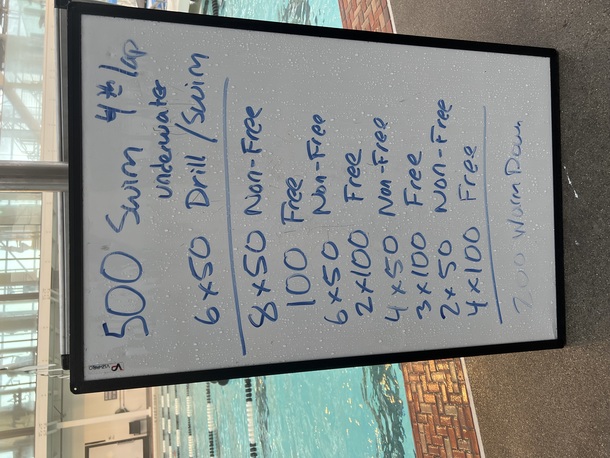 500 Swim 4th lap
underwater
6x50 Drill/Swim
8x50 Non-Free
100 Free
6x50 Non-Free
2x100 Free
4x50 Non-Free
3x100 Free
2x50 Non-Free
4x100 Free
200 Warm Down